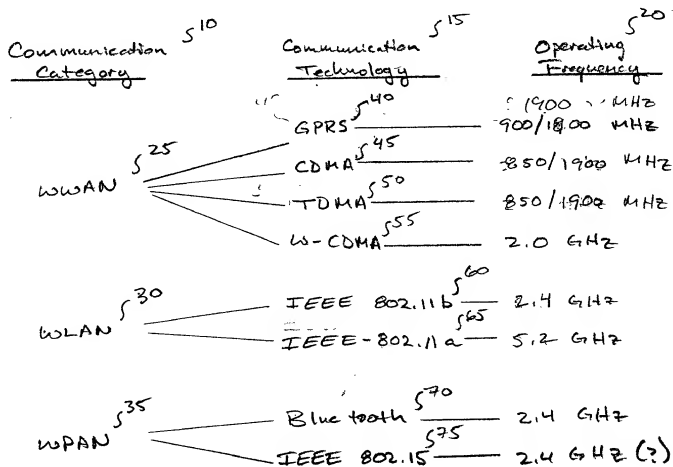 Communication 10
Category
Communication 15
Technology
Operating 20
Frequency
1900 MHz
GPRS 40 900/1800 MHz
WWAN 25
CDMA 45 850/1900 MHz
TDMA 50 850/1900 MHz
W-CDMA 55 2.0 GHz
WLAN 30
IEEE 802.11b 60 2.4 GHz
IEEE-802.11a 65 5.2 GHz
WPAN 35
Bluetooth 70 2.4 GHz
IEEE 802.15 75 2.4 GHz (?)